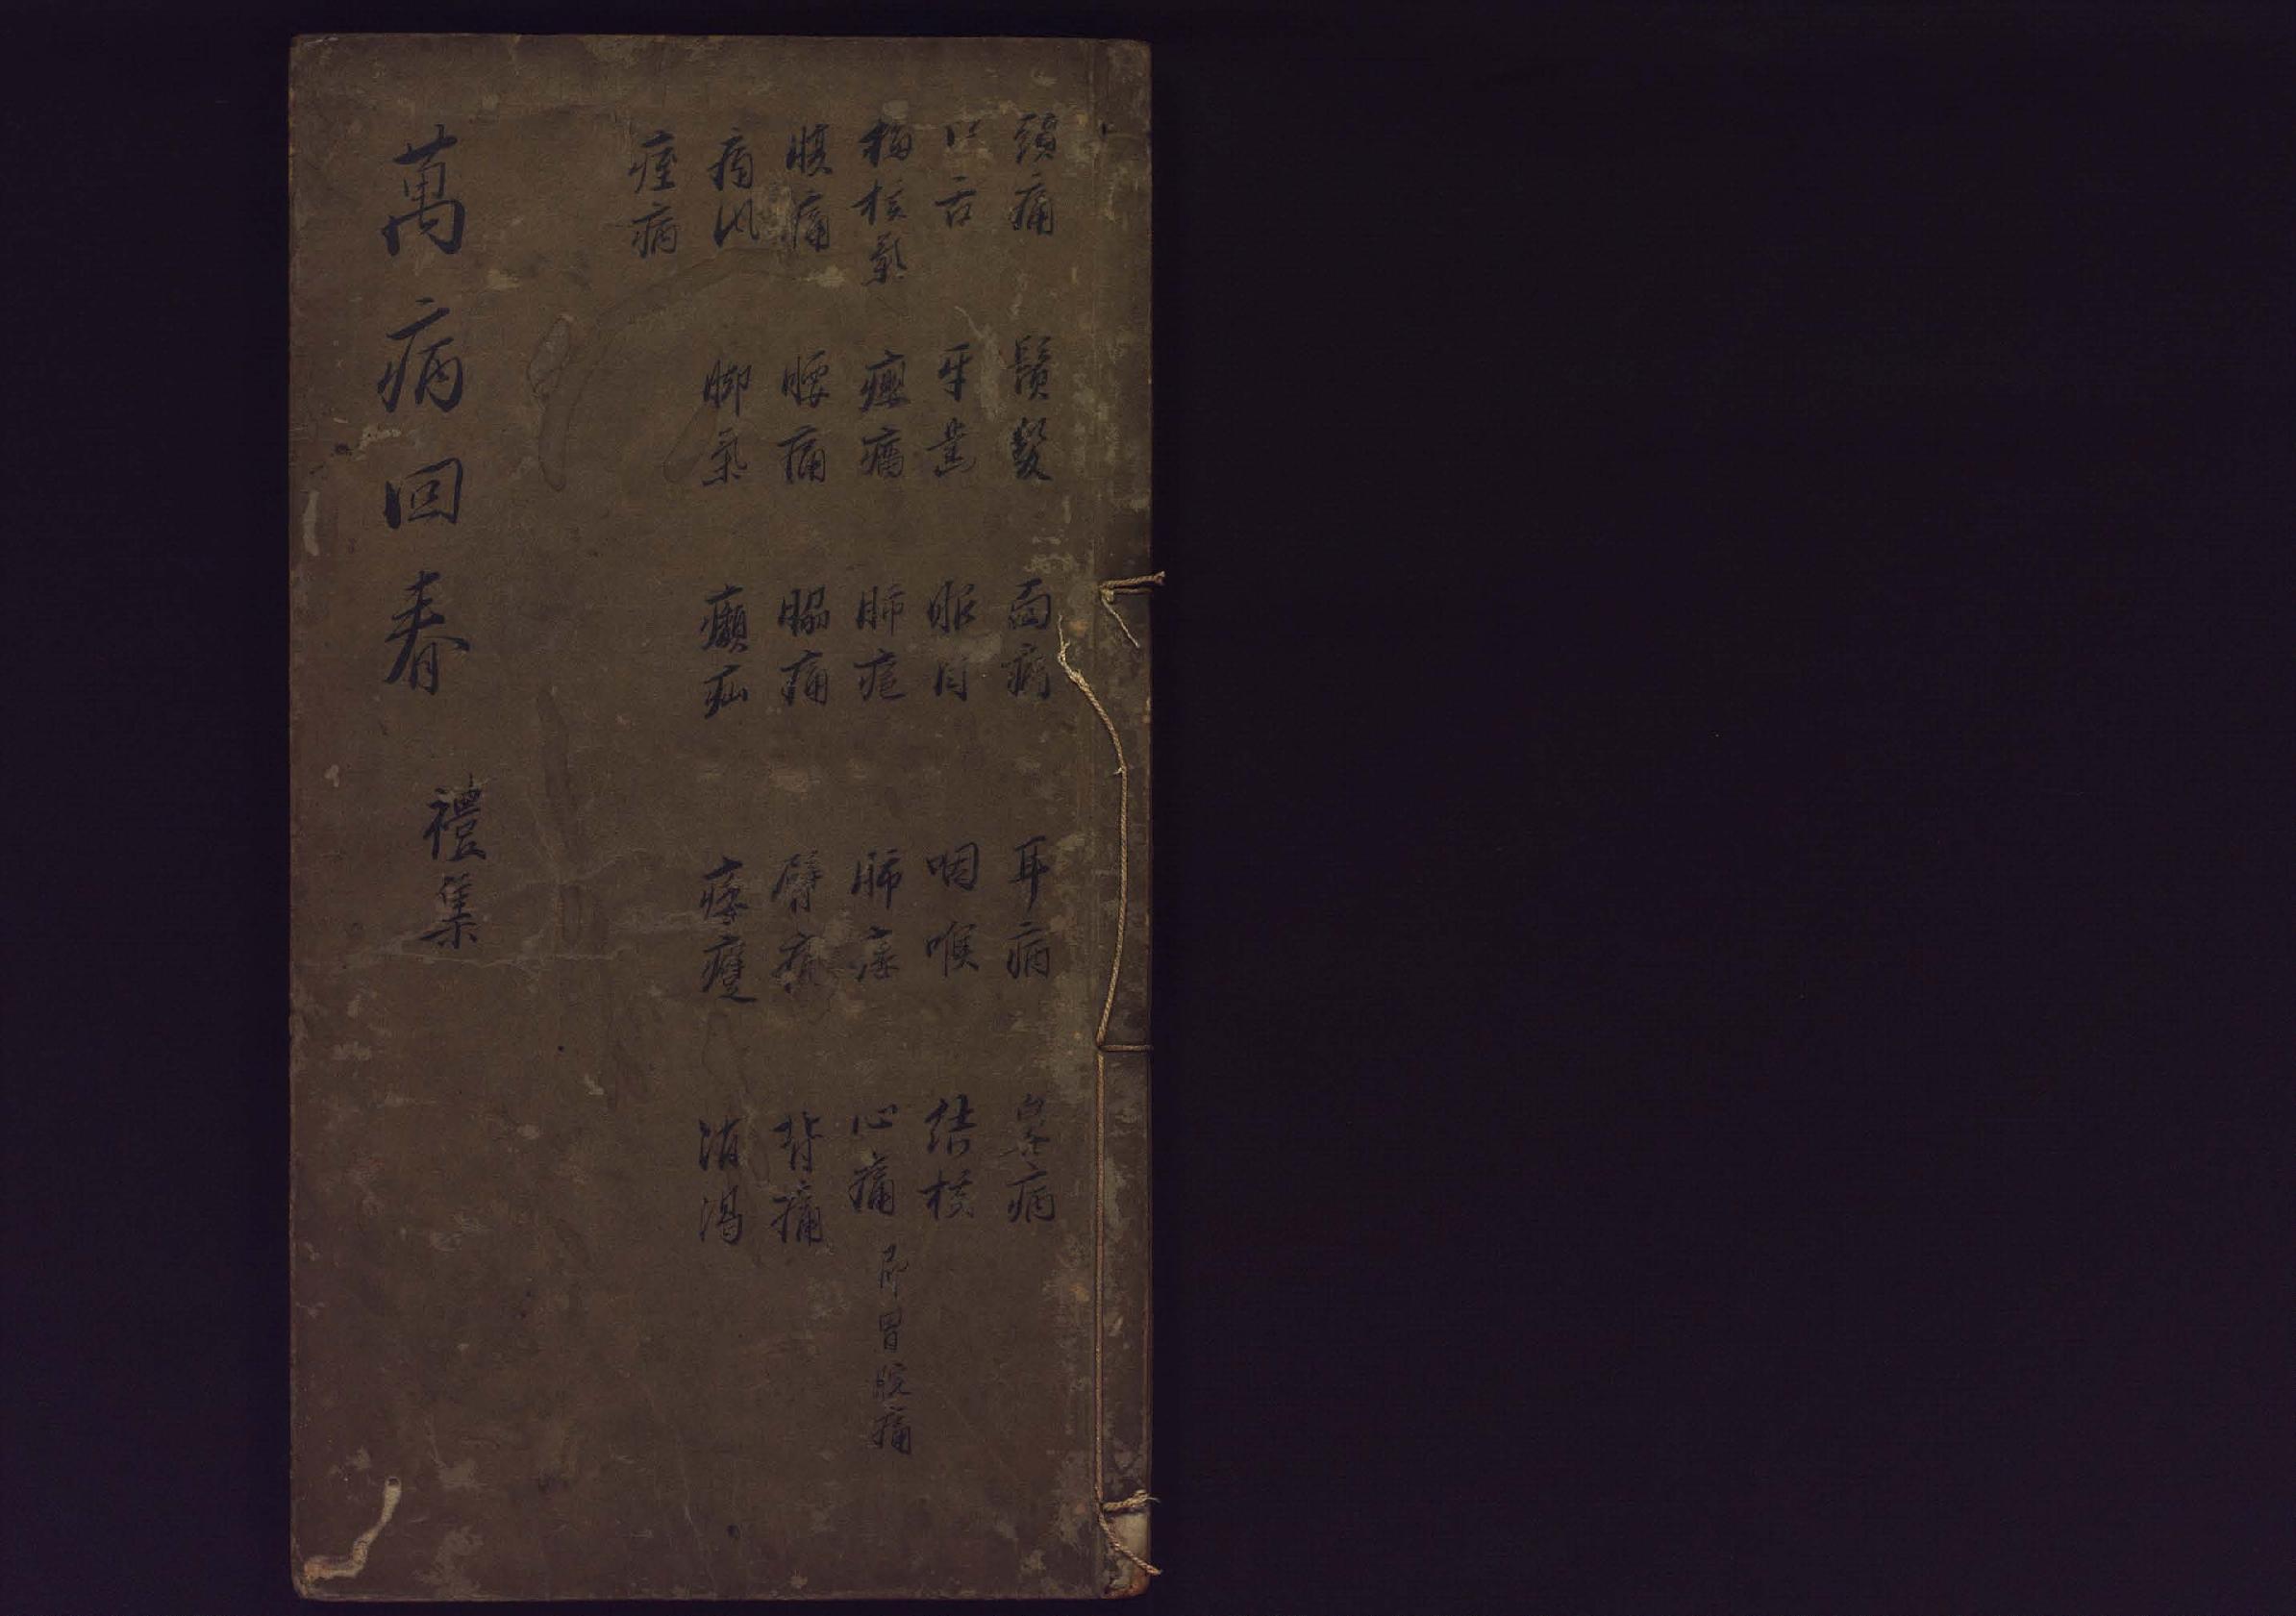 頭痛 鬚髮 面病 耳病 鼻病
口舌 牙齒 眼目 咽喉 結核
梅核氣 癭瘤 肺癰 肺痿 心痛 即胃脘痛
腹痛 腰痛 脇痛 臂痛 背痛
痛風 脚氣 癲疝 痿躄 消渴
痓病
萬病回春 禮集